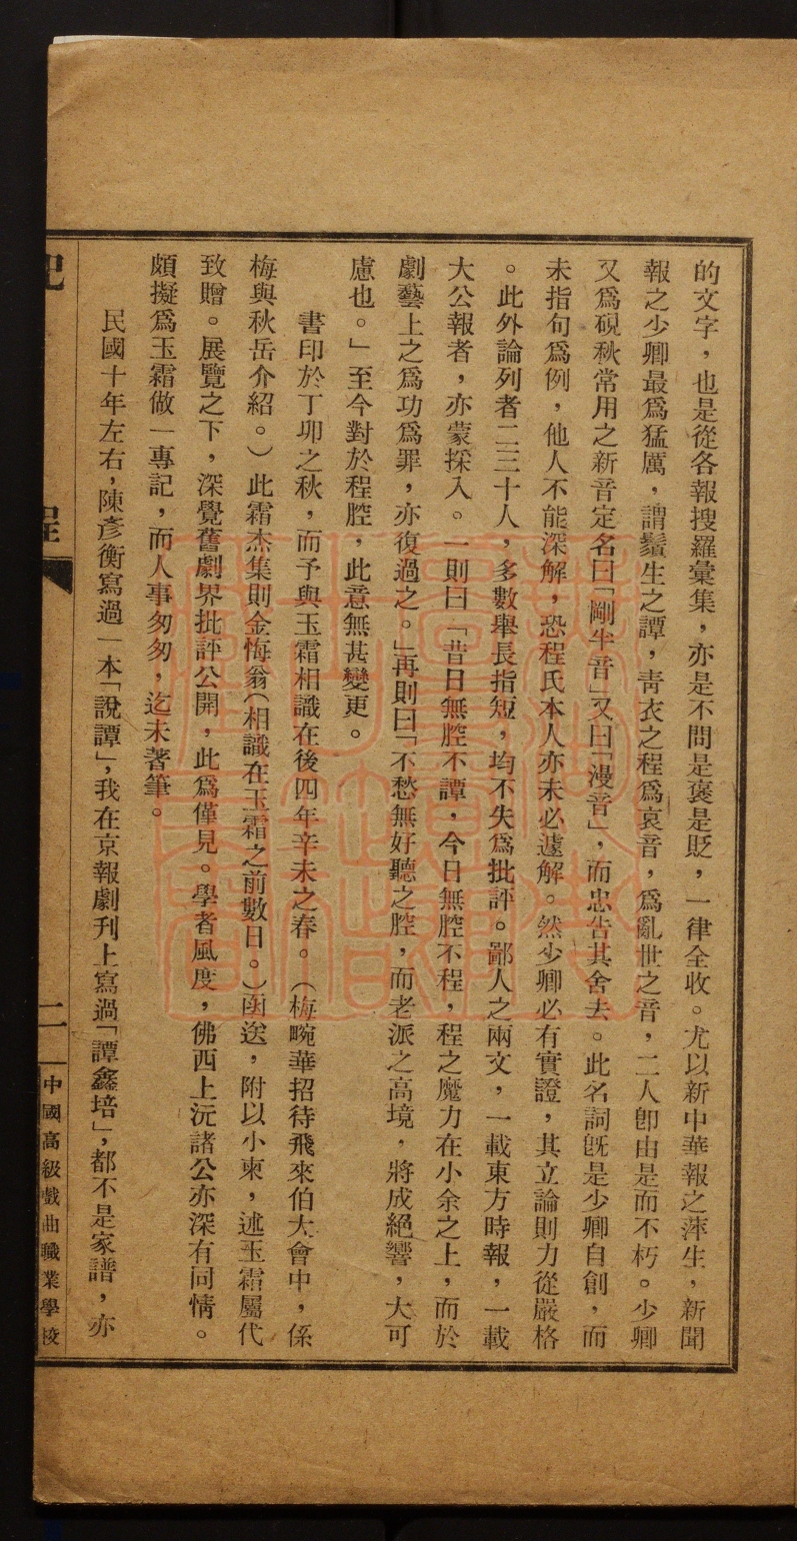 的文字，也是從各報搜羅彙集，亦是不問是褒是貶，一律全收。尤以新中華報之萍生，新聞
報之少卿最爲猛厲，謂鬚生之譚，靑衣之程爲哀音，爲亂世之音，二人卽由是而不朽。少卿
又爲硯秋常用之新音定名曰「剛半音」又曰「漫音」，而忠告其舍去。此名詞旣是少卿自創，而
未指句爲例，他人不能深解，恐程氏本人亦未必遽解。然少卿必有實證，其立論則力從嚴格
。此外論列者二三十人，多數舉長指短，均不失爲批評。鄙人之兩文，一載東方時報，一載
大公報者，亦蒙採入。一則曰「昔日無腔不譚，今日無腔不程，程之魔力在小余之上，而於
劇藝上之爲功爲罪，亦復過之。」再則曰「不愁無好聽之腔，而老派之高境，將成絕響，大可
慮也。」至今對於程腔，此意無甚變更。
書印於丁卯之秋，而予與玉霜相識在後四年辛未之春。（梅畹華招待飛來伯大會中，係
梅與秋岳介紹。）此霜杰集則金悔翁（相識在玉霜之前數日。）函送，附以小柬，述玉霜屬代
致贈。展覽之下，深覺舊劇界批評公開，此爲僅見。學者風度，佛西上沅諸公亦深有同情。
頗擬爲玉霜做一專記，而人事匆匆，迄未著筆。
民國十年左右，陳彥衡寫過一本「說譚」，我在京報劇刊上寫過「譚鑫培」，都不是家譜，亦
記 程 二 中國高級戲曲職業學校